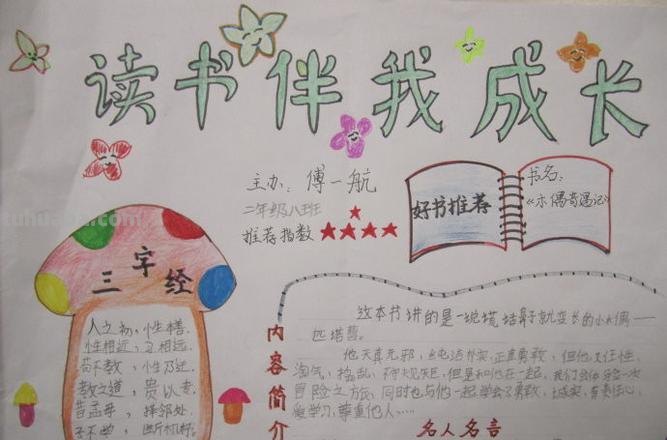 读书伴我成长
主办：傅一航
二年级八班
推荐指数★★★★★
好书推荐
书名：
《木偶奇遇记》
三字经
人之初，性本善。
性相近，习相远。
苟不教，性乃迁。
教之道，贵以专。
昔孟母，择邻处。
子不学，断机杼。
内容简介
这本书讲的是一说谎，鼻子就变长的小木偶——
匹诺曹。
他天真无邪，纯洁朴实，正直勇敢，但他又任性、
淘气，捣乱，不守规矩，但是和他在一起，我们会体验一次
冒险之旅，同时也与他一起学会了勇敢、诚实，有责任心，
爱学习，尊重他人……
名人名言